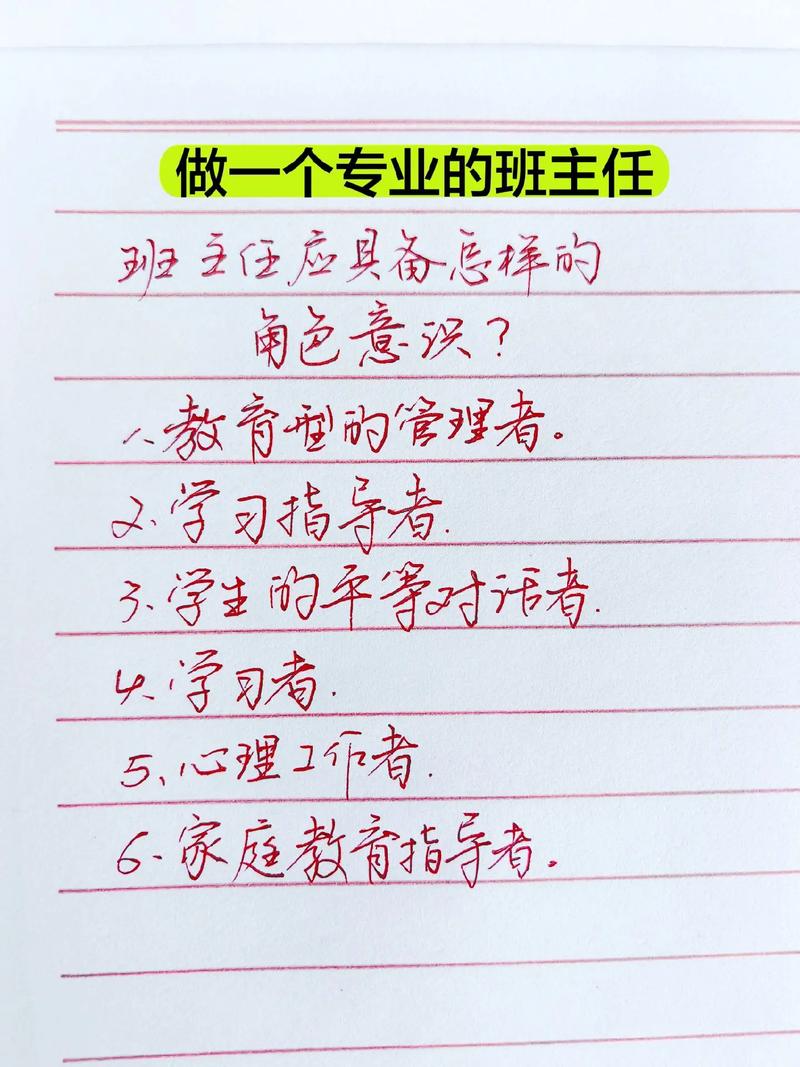 做一个专业的班主任
班主任应具备怎样的
角色意识?
1、教育型的管理者。
2、学习指导者.
3、学生的平等对话者.
4、学习者.
5、心理工作者.
6、家庭教育指导者。